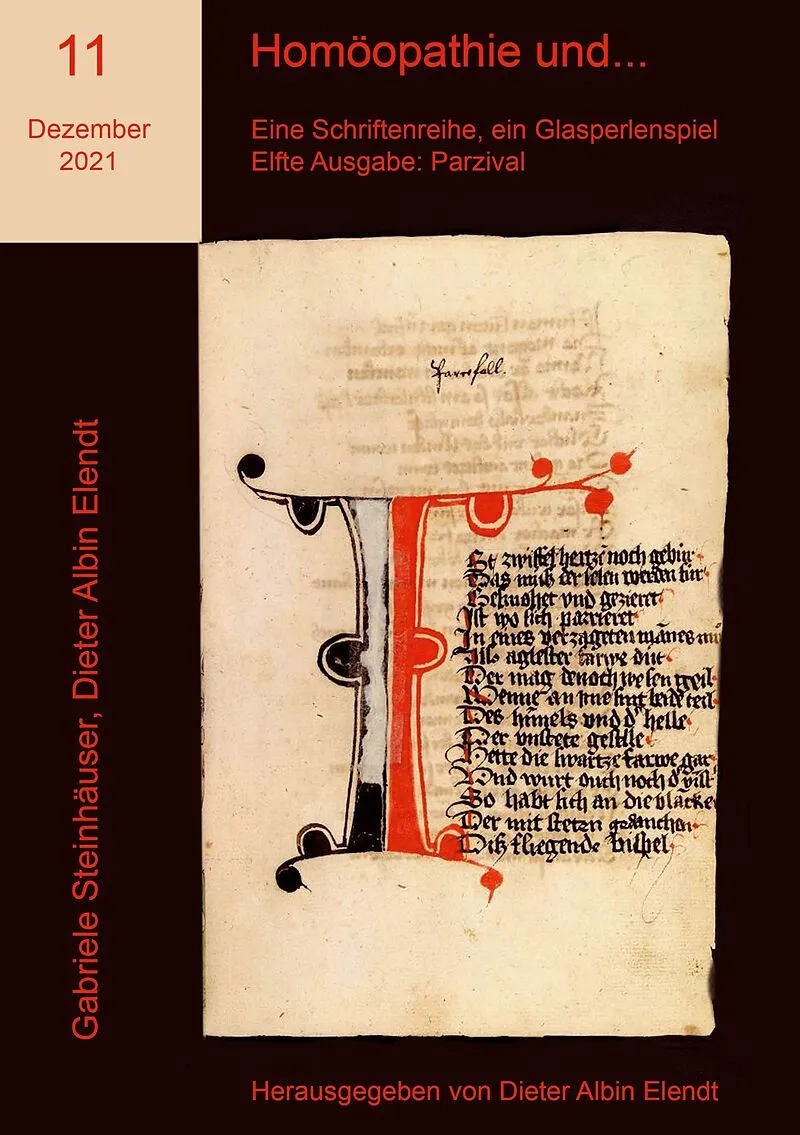 11
Dezember
2021
Homöopathie und...
Eine Schriftenreihe, ein Glasperlenspiel
Elfte Ausgabe: Parzival
Gabriele Steinhäuser, Dieter Albin Elendt
Parcefall.
I
St zwiffel hertzē noch gebur
Das muß der selen werden sur
Gesmohet vnd gezieret
Ist wo sich parrieret
In eines verzageten mānes
Also aglester farwe dut
Der mag denoch wesen geil
Wenne an yme sint beide teil
Des himels vnd d' helle
Der vnstete geselle
Hette die swartze farwe gar
Vnd wurt ouch noch d'
So habt sich an die blācke
Der mit steten gedancken
Diß fliegende bischel
Herausgegeben von Dieter Albin Elendt